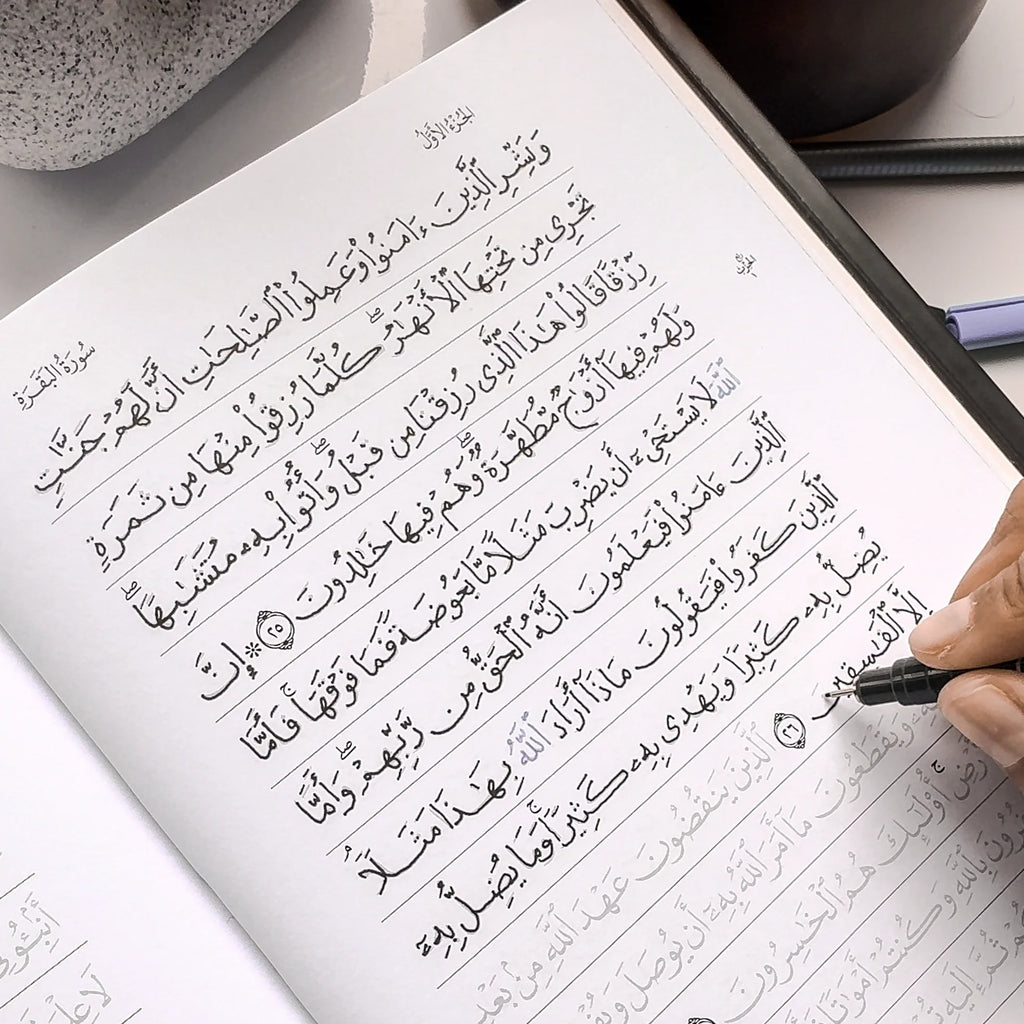 الجزء الأول
سورة البقرة
وَبَشِّرِ ٱلَّذِينَ ءَامَنُوا۟ وَعَمِلُوا۟ ٱلصَّـٰلِحَـٰتِ أَنَّ لَهُمْ جَنَّـٰتٍ
تَجْرِى مِن تَحْتِهَا ٱلْأَنْهَـٰرُ ۖ كُلَّمَا رُزِقُوا۟ مِنْهَا مِن ثَمَرَةٍ
رِّزْقًا قَالُوا۟ هَـٰذَا ٱلَّذِى رُزِقْنَا مِن قَبْلُ ۖ وَأُتُوا۟ بِهِۦ مُتَشَـٰبِهًا ۖ
وَلَهُمْ فِيهَآ أَزْوَٰجٌ مُّطَهَّرَةٌ ۖ وَهُمْ فِيهَا خَـٰلِدُونَ ٢٥ ۞ إِنَّ
ٱللَّهَ لَا يَسْتَحْىِۦٓ أَن يَضْرِبَ مَثَلًا مَّا بَعُوضَةً فَمَا فَوْقَهَا ۚ فَأَمَّا
ٱلَّذِينَ ءَامَنُوا۟ فَيَعْلَمُونَ أَنَّهُ ٱلْحَقُّ مِن رَّبِّهِمْ ۖ وَأَمَّا
ٱلَّذِينَ كَفَرُوا۟ فَيَقُولُونَ مَاذَآ أَرَادَ ٱللَّهُ بِهَـٰذَا مَثَلًا ۘ
يُضِلُّ بِهِۦ كَثِيرًا وَيَهْدِى بِهِۦ كَثِيرًا ۚ وَمَا يُضِلُّ بِهِۦٓ
إِلَّا ٱلْفَـٰسِقِينَ ٢٦ ٱلَّذِينَ يَنقُضُونَ عَهْدَ ٱللَّهِ مِنۢ بَعْدِ
وَيَقْطَعُونَ مَآ أَمَرَ ٱللَّهُ بِهِۦٓ أَن يُوصَلَ
أُو۟لَـٰٓئِكَ هُمُ ٱلْخَـٰسِرُونَ
بِٱللَّهِ وَكُنتُمْ أَمْوَٰتًا
ثُمَّ إِلَيْهِ